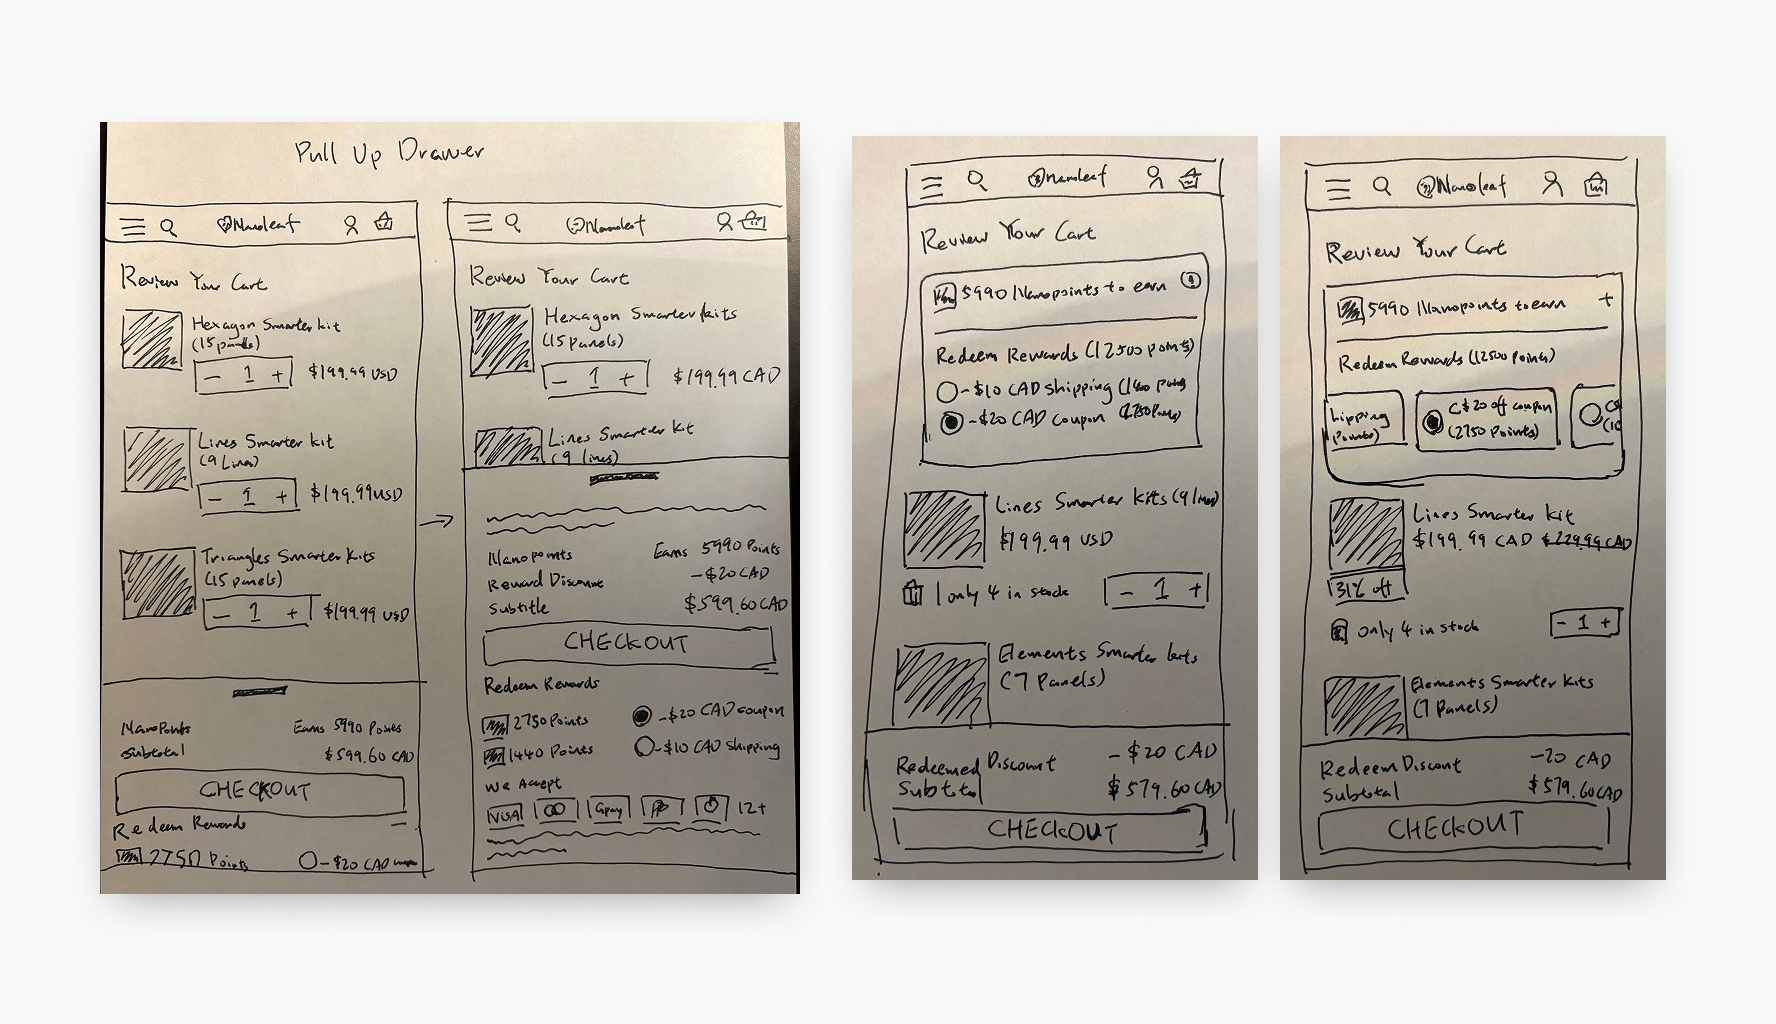 Pull Up Drawer
Nanoleaf
Review Your Cart
Hexagon Smarter kit
(15 panels)
- 1 +
$199.99 USD
Lines Smarter kit
(9 Lines)
- 1 +
$199.99 USD
Triangles Smarter Kits
(15 panels)
- 1 +
$199.99 USD
NanoPoints
Earns 5990 Points
Subtotal
$599.60 CAD
CHECKOUT
Redeem Rewards
2750 Points
-$20 CAD
Nanoleaf
Review Your Cart
Hexagon Smarter kits
(15 panels)
- 1 +
$199.99 CAD
Lines Smarter Kit
(9 lines)
Nanopoints
Earns 5990 Points
Reward Discount
-$20 CAD
Subtitle
$599.60 CAD
CHECKOUT
Redeem Rewards
2750 Points
-$20 CAD coupon
1440 Points
-$10 CAD Shipping
We Accept
VISA
Gpay
12+
Nanoleaf
Review Your Cart
5990 Nanopoints to earn
Redeem Rewards (12500 points)
-$10 CAD Shipping
-$20 CAD coupon (2750 Points)
Lines Smarter Kits (9 lines)
$199.99 USD
only 4 in stock
- 1 +
Elements Smarter kits
(7 Panels)
Redeemed Discount
-$20 CAD
Subtotal
$579.60 CAD
CHECKOUT
Nanoleaf
Review Your Cart
5990 Nanopoints to earn
+
Redeem Rewards (12500 Points)
hipping
Points)
C$20 off coupon
(2750 Points)
Lines Smarter Kit
$199.99 CAD $229.99 CAD
31% off
only 4 in stock
- 1 +
Elements Smarter Kits
(7 Panels)
Redeem Discount
-20 CAD
Subtotal
$579.60 CAD
CHECKOUT